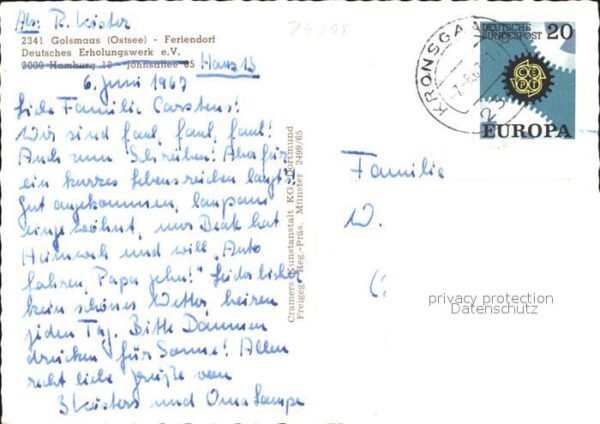 Abs. R. Köster
2341 Golsmaas (Ostsee) - Feriendorf
Deutsches Erholungswerk e.V.
2000 Hamburg 10 Johnsallee 65
Haus 13
6. Juni 1967
Liebe Familie Carstens!
Wir sind faul, faul, faul!
Auch zum Schreiben! Aber für
ein kurzes Lebenszeichen langt's!
Gut angekommen, langsam
eingewöhnt, nur Dierk hat
Heimweh und will "Auto
fahren, Papa gehn!" Leider bisher
kein schönes Wetter, heizen
jeden Tag. Bitte Daumen
drücken für Sonne! Allen
recht liebe Grüße von
3 Kösters und Oma Lampe
Cramers Kunstanstalt KG. Dortmund
Freigeg. Reg.-Präs. Münster 2499/65
KRONSGA
23
DEUTSCHE
BUNDESPOST
20
CEPT
EUROPA
Familie
W.
C
privacy protection
Datenschutz